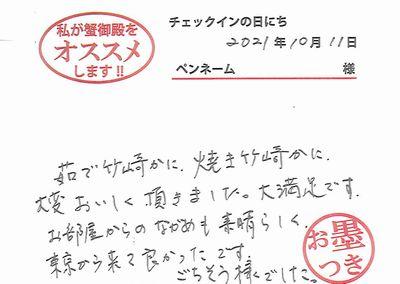 私が蟹御殿を
オススメ
します!!
チェックインの日にち
2021年10月11日
ペンネーム 様
茹で竹崎かに、焼き竹崎かに、
大変おいしく頂きました。大満足です。
お部屋からのながめも素晴らしく、
東京から来て良かったです。
ごちそう様でした。
お墨
つき